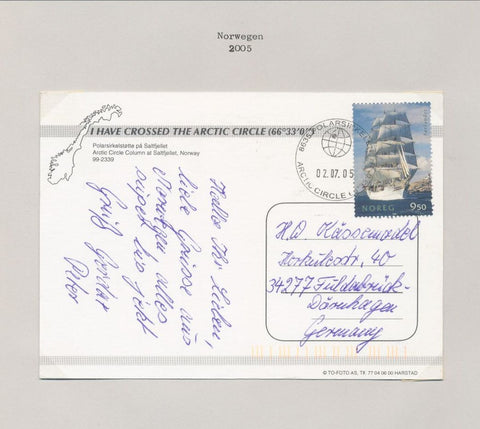 Norwegen
2005
I HAVE CROSSED THE ARCTIC CIRCLE (66°33'0
Polarsirkelstøtte på Saltfjellet
Arctic Circle Column at Saltfjellet, Norway
99-2339
8635 POLARSIRKELEN
02.07.05
ARCTIC CIRCLE
NOREG 9,50
Hallo Ihr Lieben,
liebe Grüsse aus
Norwegen alles
super bis jetzt
Gruß
Peter
H.D. Kässemodel
34277 Fuldabrück-
Dörnhagen
Germany
© TO-FOTO AS, Tlf. 77 04 06 00 HARSTAD